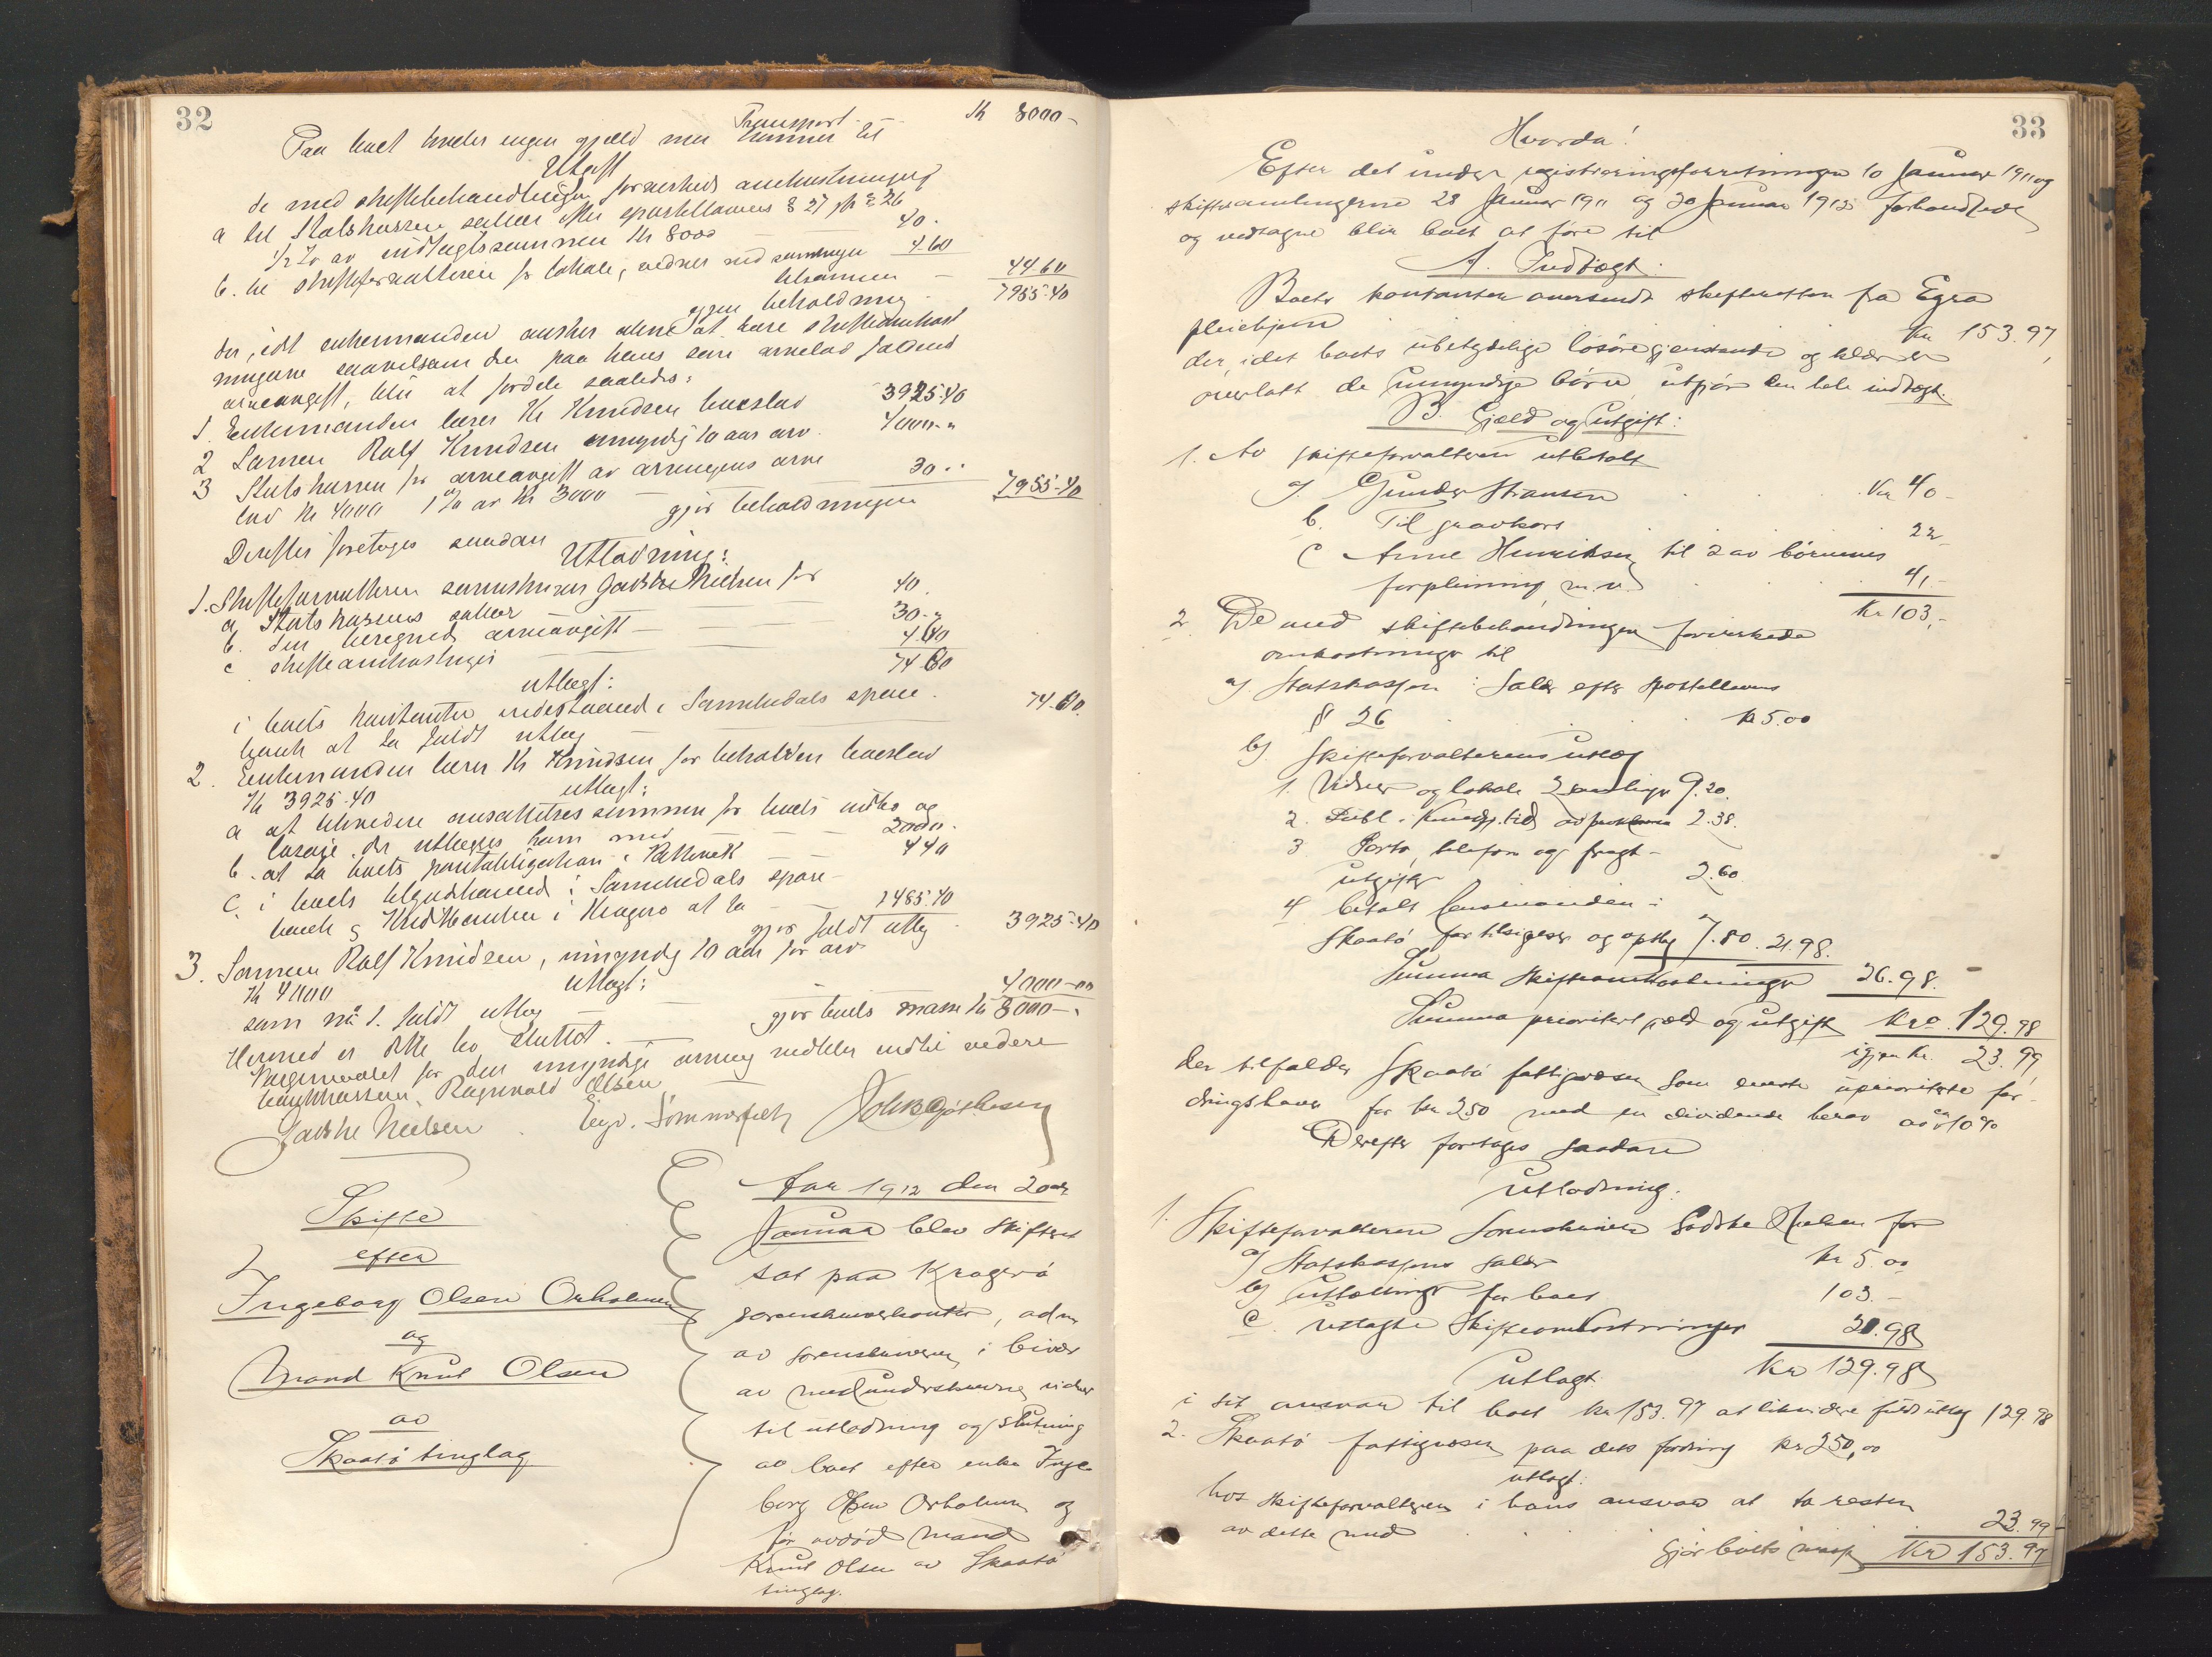 32
Transport Kr 8000-
Paa boet hviler ingen gjæld men kommer til
Utgift
de med skiftebehandlingen forærsket omkostninger
a til Statskassen salær efter sportellovens § 27 jfr § 26
1/2 % av indtægtssummen Kr 8000 40.
b. til skifteforvalteren for lokale, vidner ved samlingen 4-60
tilsammen - 44 60
igjen beholdning 7955-40
der, idet enkemanden ønsker alene at bære skifteomkost
ningerne saavelsom den paa hans søns arvelod faldende
arveavgift, blir at fordele saaledes:
1. Enkemanden Kr Knudsen boeslod 3925-40
2 Sønnen Rolf Knudsen umyndig 10 aar arv. 4000-"
3 Statskassen for arveavgift av arvingens arve
lod Kr 4000 1 % av Kr 3000 30..
gjør beholdningen 7955-40
Derefter foretages saadan
Utlodning:
1. Skifteforvalteren sorenskriver Godske Nielsen for
a Statskassens salær 40.
b. den beregnede arveavgift 30-"
c skifteomkostninger 4.60
74 60
utlagt:
i boets kontanter indestaaende i Sannikedals spare
bank at ta fuldt utlæg 74-60.
2. Enkemanden Kr Knudsen for beholden boeslod
Kr 3925-40
utlagt:
a at likvidere ansættelsessummen for boets indbo og
løsøre der utlægges ham med 2000.
b. at ta boets pantobligation i 440
c. i boets tilgodehavende i Sannikedals spare-
bank og Kreditbanken i Kragerø at ta 1485.40
gjør fuldt utlæg 3925-40
3. Sønnen Rolf Knudsen, umyndig 10 aar for arv
Kr 4000
utlagt:
som no 1. fuldt utlæg 4000-00
gjør boets masse Kr 8000-
Hermed er dette bo sluttet.
Vergemaalet for den umyndige arving indtil videre
Ragnvald Olsen
Godske Nielsen
Skifte
efter
Ingeborg Olsen Orholmen
og
Mand Knut Olsen
av
Skaatø tinglag
Aar 1912 den 20de
Januar blev skifteret
sat paa Kragerø
sorenskriverkontor, adm
av sorenskriveren i bivær
av medunderskrevne vidner
til utlodning og slutning
av boet efter enke Inge
borg Olsen Orholmen og
før avdød mand
Knut Olsen av Skaatø
tinglag.
33
Hvorda!
Efter det under registreringsforretningen 10 Januar 1911 og
skiftesamlingerne 28 Januar 1911 og 20 Januar 1912 forhandlede
og vedtagne blir boet at føre til
A. Indtægt.
Boets kontanter oversendt skifteretten fra Egra
pleiehjem Kr 153.97,
der, idet boets ubetydelige løsøregjenstande og klær er
overlatt de umyndige børn, utgjør den hele indtægt.
B. Gjæld og utgift:
1. Av skifteforvalteren utbetalt
a) Gunder Hansen Kr 40-
b. Til gravkors 22-
c Anne Henriksen til 2 av børnenes
forpleining m.v. 41.-
Kr 103,-
2. De med skiftebehandlingen forærskede
omkostninger til
a) Statskassen: Salær efter sportellovens
§ 26 Kr 5.00
b) Skifteforvalterens utlæg
1. Vidner og lokale 2 samlinger 9.20.
2. Publ. i Kundgj. tid. av proklama 2.38.
3 Porto, telefon og fragt-
utgifter 2.60.
4 betalt lensmanden i
Skaatø for tilsigelser og opslag 7.80. 21.98.
Summa skifteomkostninger 26.98.
Summa prioritert gjæld og utgift Kr. 129.98
igjen Kr. 23.99,
der tilfalder Skaatø fattigvæsen som eneste uprioriterte for-
dringshaver for Kr 250 med en dividende herav av ca 10 %
Derefter foretages saadan
utlodning.
1. Skifteforvalteren Sorenskriver Godske Nielsen for
a) Statskassens salær Kr 5.00
b) utbetalinger for boet 103.-
c. utlagte skifteomkostninger 21.98
Kr 129.98
utlagt
i sit ansvar til boet kr 153.97 at likvidere fuldt utlæg 129.98
2. Skaatø fattigvæsen paa dets fordring Kr 250,00
utlagt:
hos skifteforvalteren i hans ansvar at ta resten
av dette med 23.99
gjør boets masse Kr 153.97